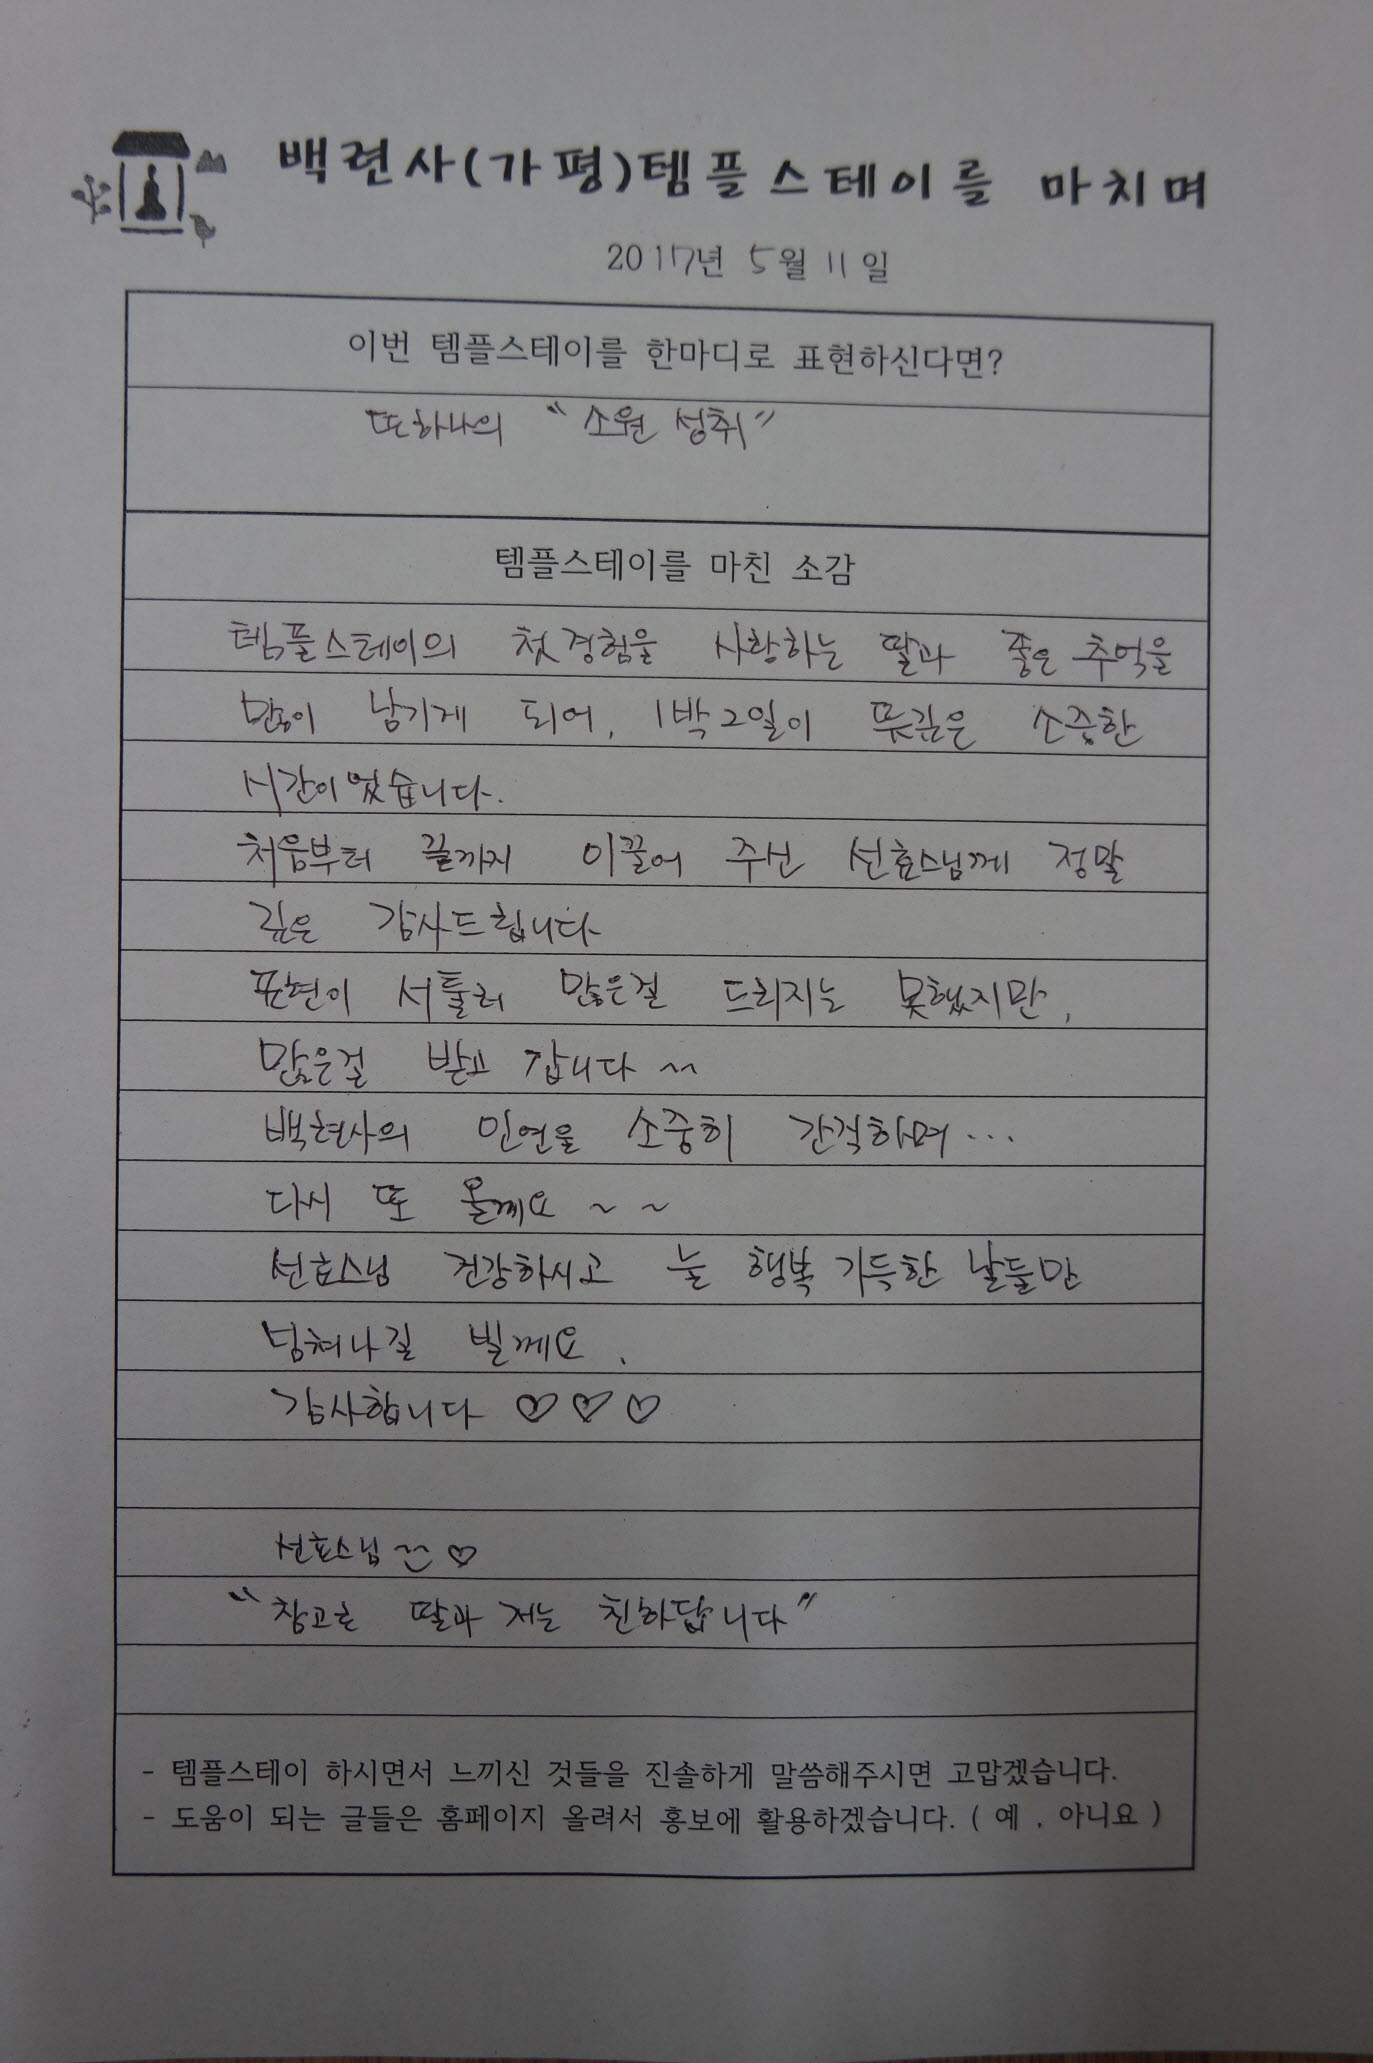 백련사(가평)템플스테이를 마치며
2017년 5월 11일
이번 템플스테이를 한마디로 표현하신다면?
또하나의 "소원 성취"
템플스테이를 마친 소감
템플스테이의 첫경험을 사랑하는 딸과 좋은 추억을
많이 남기게 되어, 1박2일이 뜻깊은 소중한
시간이었습니다.
처음부터 끝까지 이끌어 주신 선효스님께 정말
깊은 감사드립니다
표현이 서툴러 많은걸 드리지는 못했지만,
많은걸 받고 갑니다 ~
백현사의 인연을 소중히 간직하며...
다시 또 올께요 ~ ~
선효스님 건강하시고 늘 행복 가득한 날들만
넘쳐나길 빌께요.
감사합니다 ♡♡♡
선효스님 ~ ♡
"참고로 딸과 저는 친하답니다"
- 템플스테이 하시면서 느끼신 것들을 진솔하게 말씀해주시면 고맙겠습니다.
- 도움이 되는 글들은 홈페이지 올려서 홍보에 활용하겠습니다. ( 예 , 아니요 )